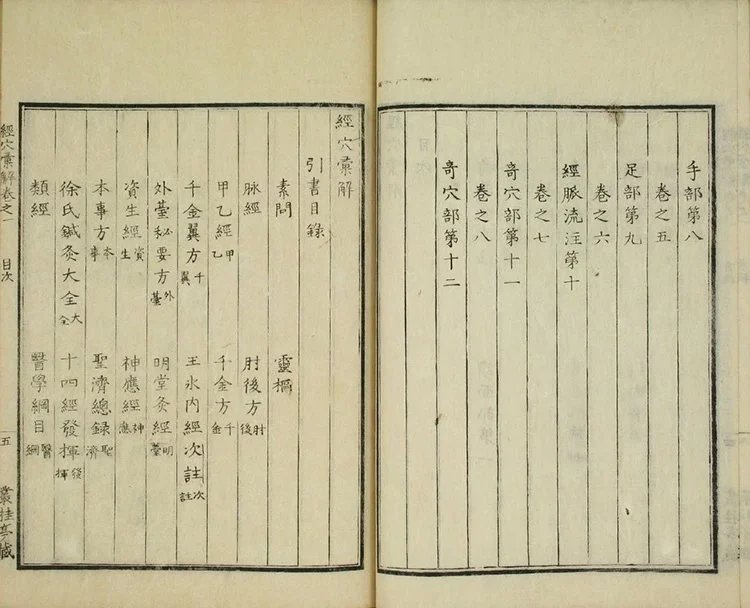 手部第八
卷之五
足部第九
卷之六
經脈流注第十
卷之七
奇穴部第十一
卷之八
奇穴部第十二
經穴彙解
引書目錄
素問 靈樞
脈經 肘後方 肘後
甲乙經 甲乙 千金方 千金
千金翼方 千翼 王氷內經次註 次註
外臺秘要方 外臺 明堂灸經 明堂
資生經 資生 神應經 神應
本事方 本事 聖濟總錄 聖濟
徐氏鍼灸大全 大全 十四經發揮 發揮
類經 醫學綱目 醫綱
經穴彙解卷之一 目次 五 叢桂亭藏